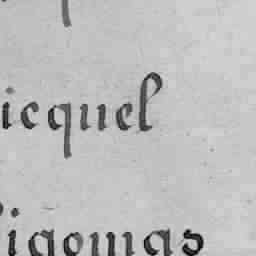 icquel
igomas